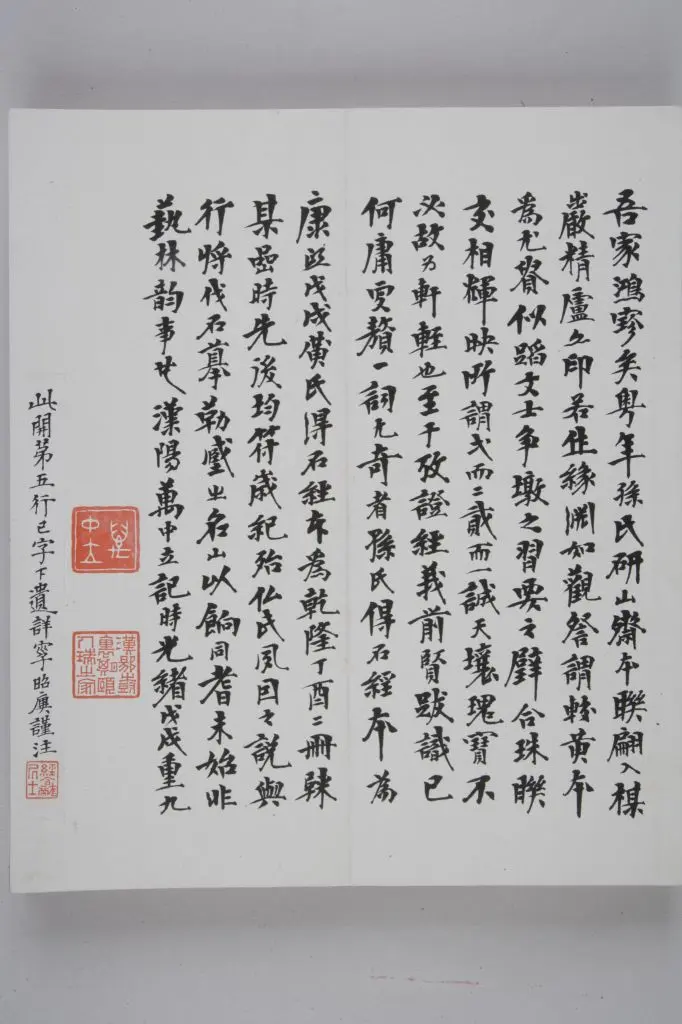 吾家鴻寥矣粤年孫氏研山齋本聯翩入楳
巖精廬以印若任緣淵如觀詧謂較黃本
為尤賢似蹈文士爭墩之習要之璧合珠聯
交相輝映所謂弌而二貳而一誠天壤瑰寶不
必故為軒輊也至于攷證經義前賢跋識已
何庸更贅一詞尤奇者孫氏得石經本為
康熙戊戌黃氏得石經本為乾隆丁酉二冊
棐嵒時先後均符歲紀殆仏氏夙因之說與
行將伐石摹勒藏之名山以餉同耆未始非
藝林韵事也漢陽萬中立記時光緒戊戌重九
此開第五行已字下遺詳字昭廙謹注
萬
中立